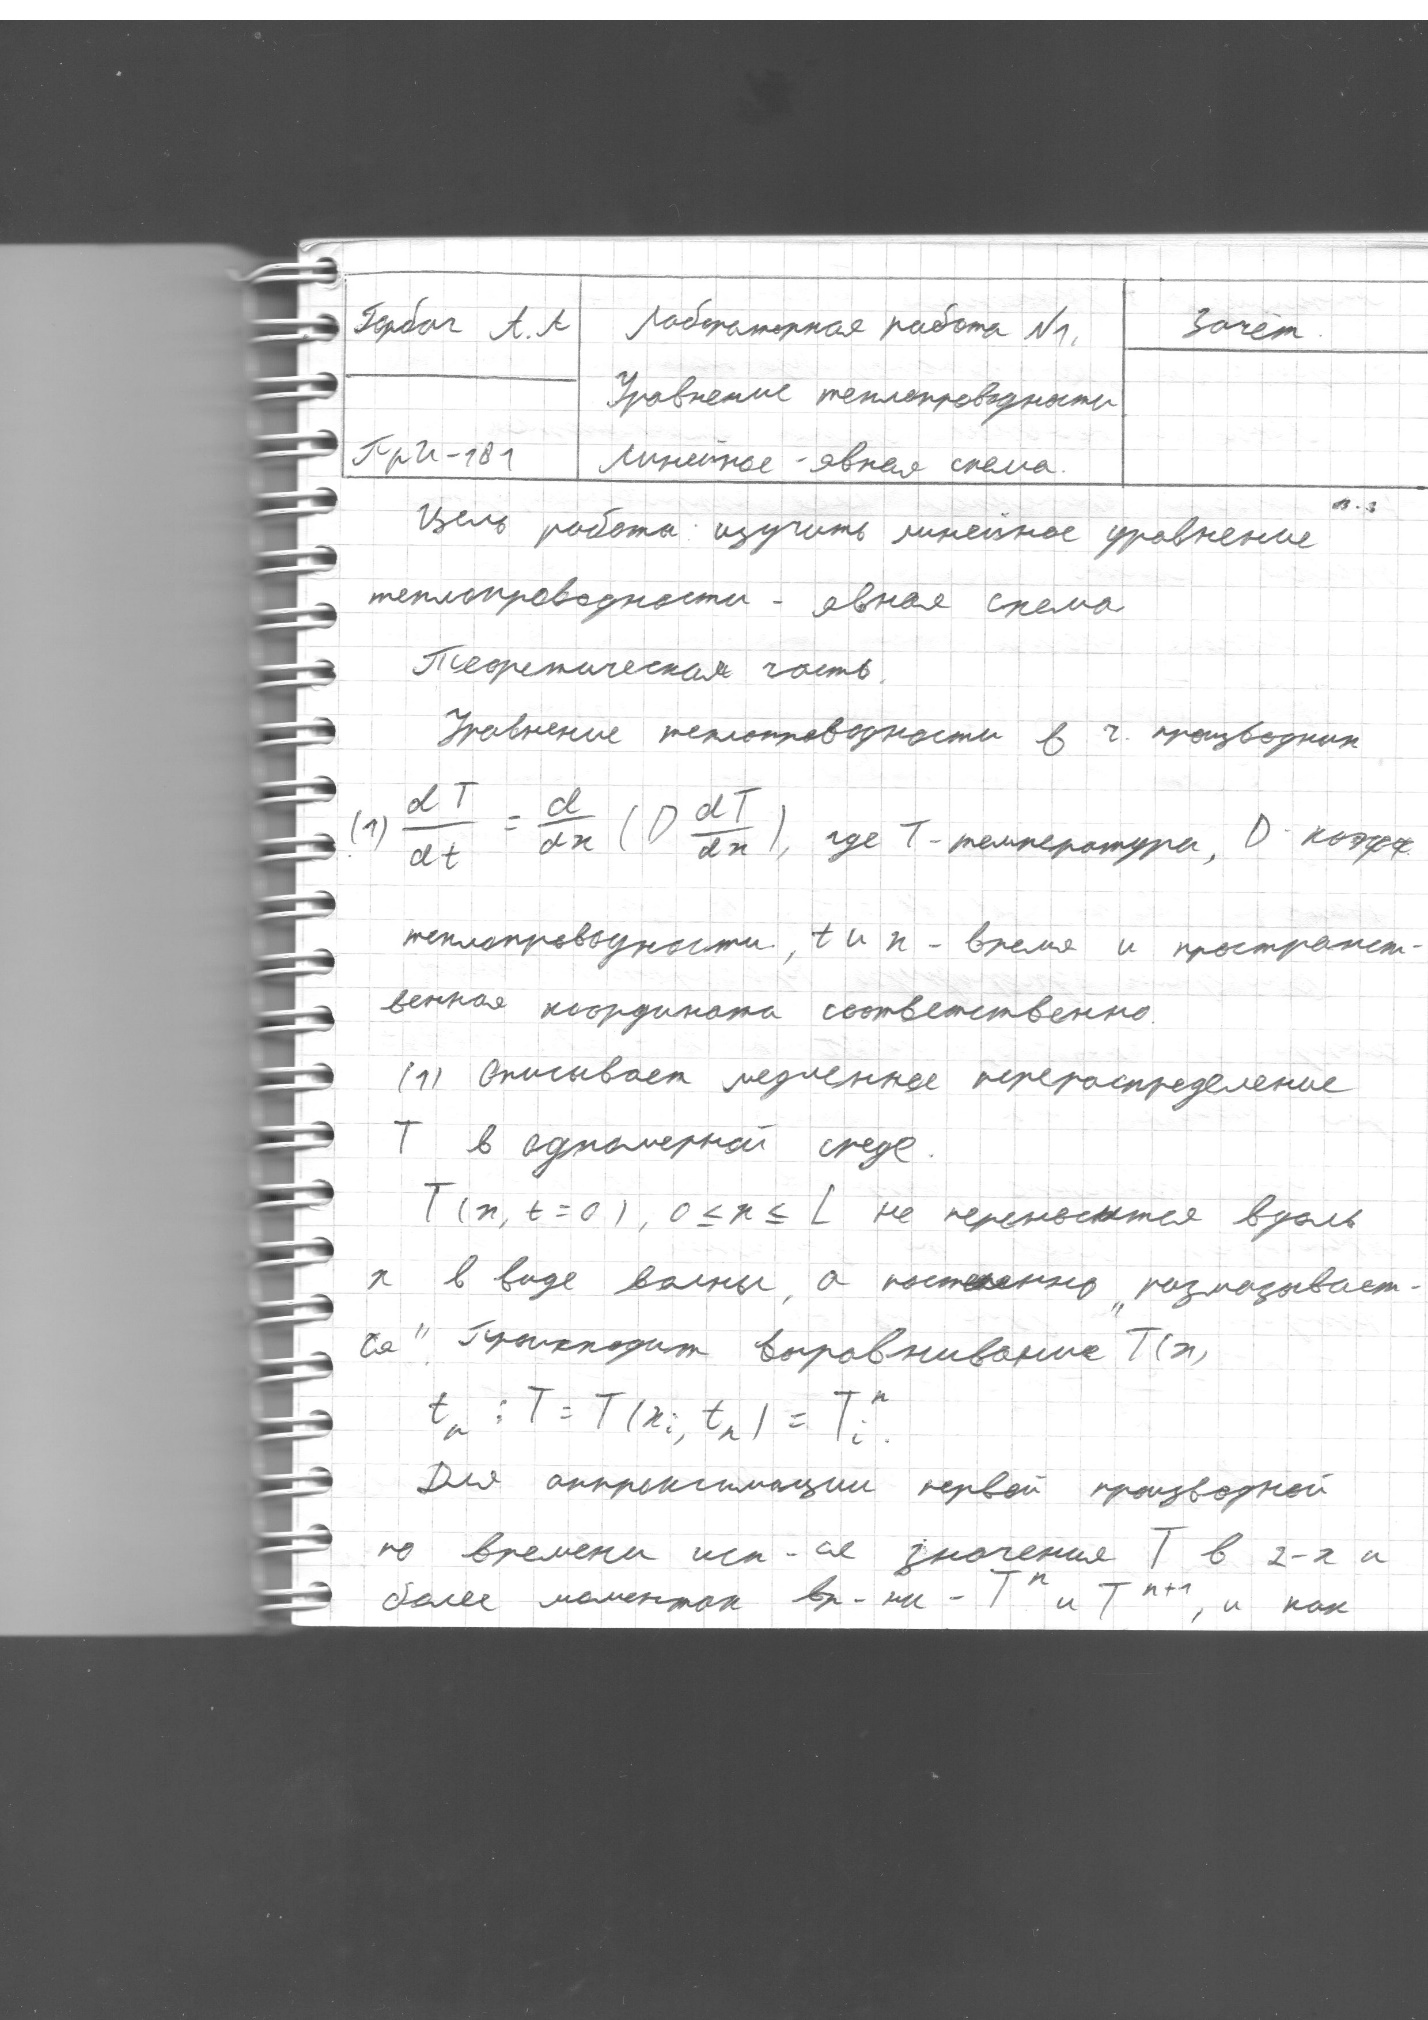 Горбач А.А
Лабораторная работа №1.
Зачёт.
Уравнение теплопроводности
ГрИ-181
Линейное - явная схема.
Цель работы: изучить линейное уравнение
теплопроводности - явная схема
Теоретическая часть.
Уравнение теплопроводности в ч. производных
(1) dT/dt = d/dx (D dT/dx), где T - температура, D - коэфф.
теплопроводности, t и x - время и пространст-
венная координата соответственно.
(1) Описывает медленное перераспределение
T в одномерной среде.
T(x, t=0), 0 ≤ x ≤ L не переносится вдоль
x в виде волны, а постепенно „размазывает-
ся". Происходит выравнивание T(x,
t_n : T = T(x_i, t_n) = T_i^n.
Для аппроксимации первой производной
по времени исп-ся значения T в 2-х и
более моментах вр-ни - T^n и T^{n+1}, и как